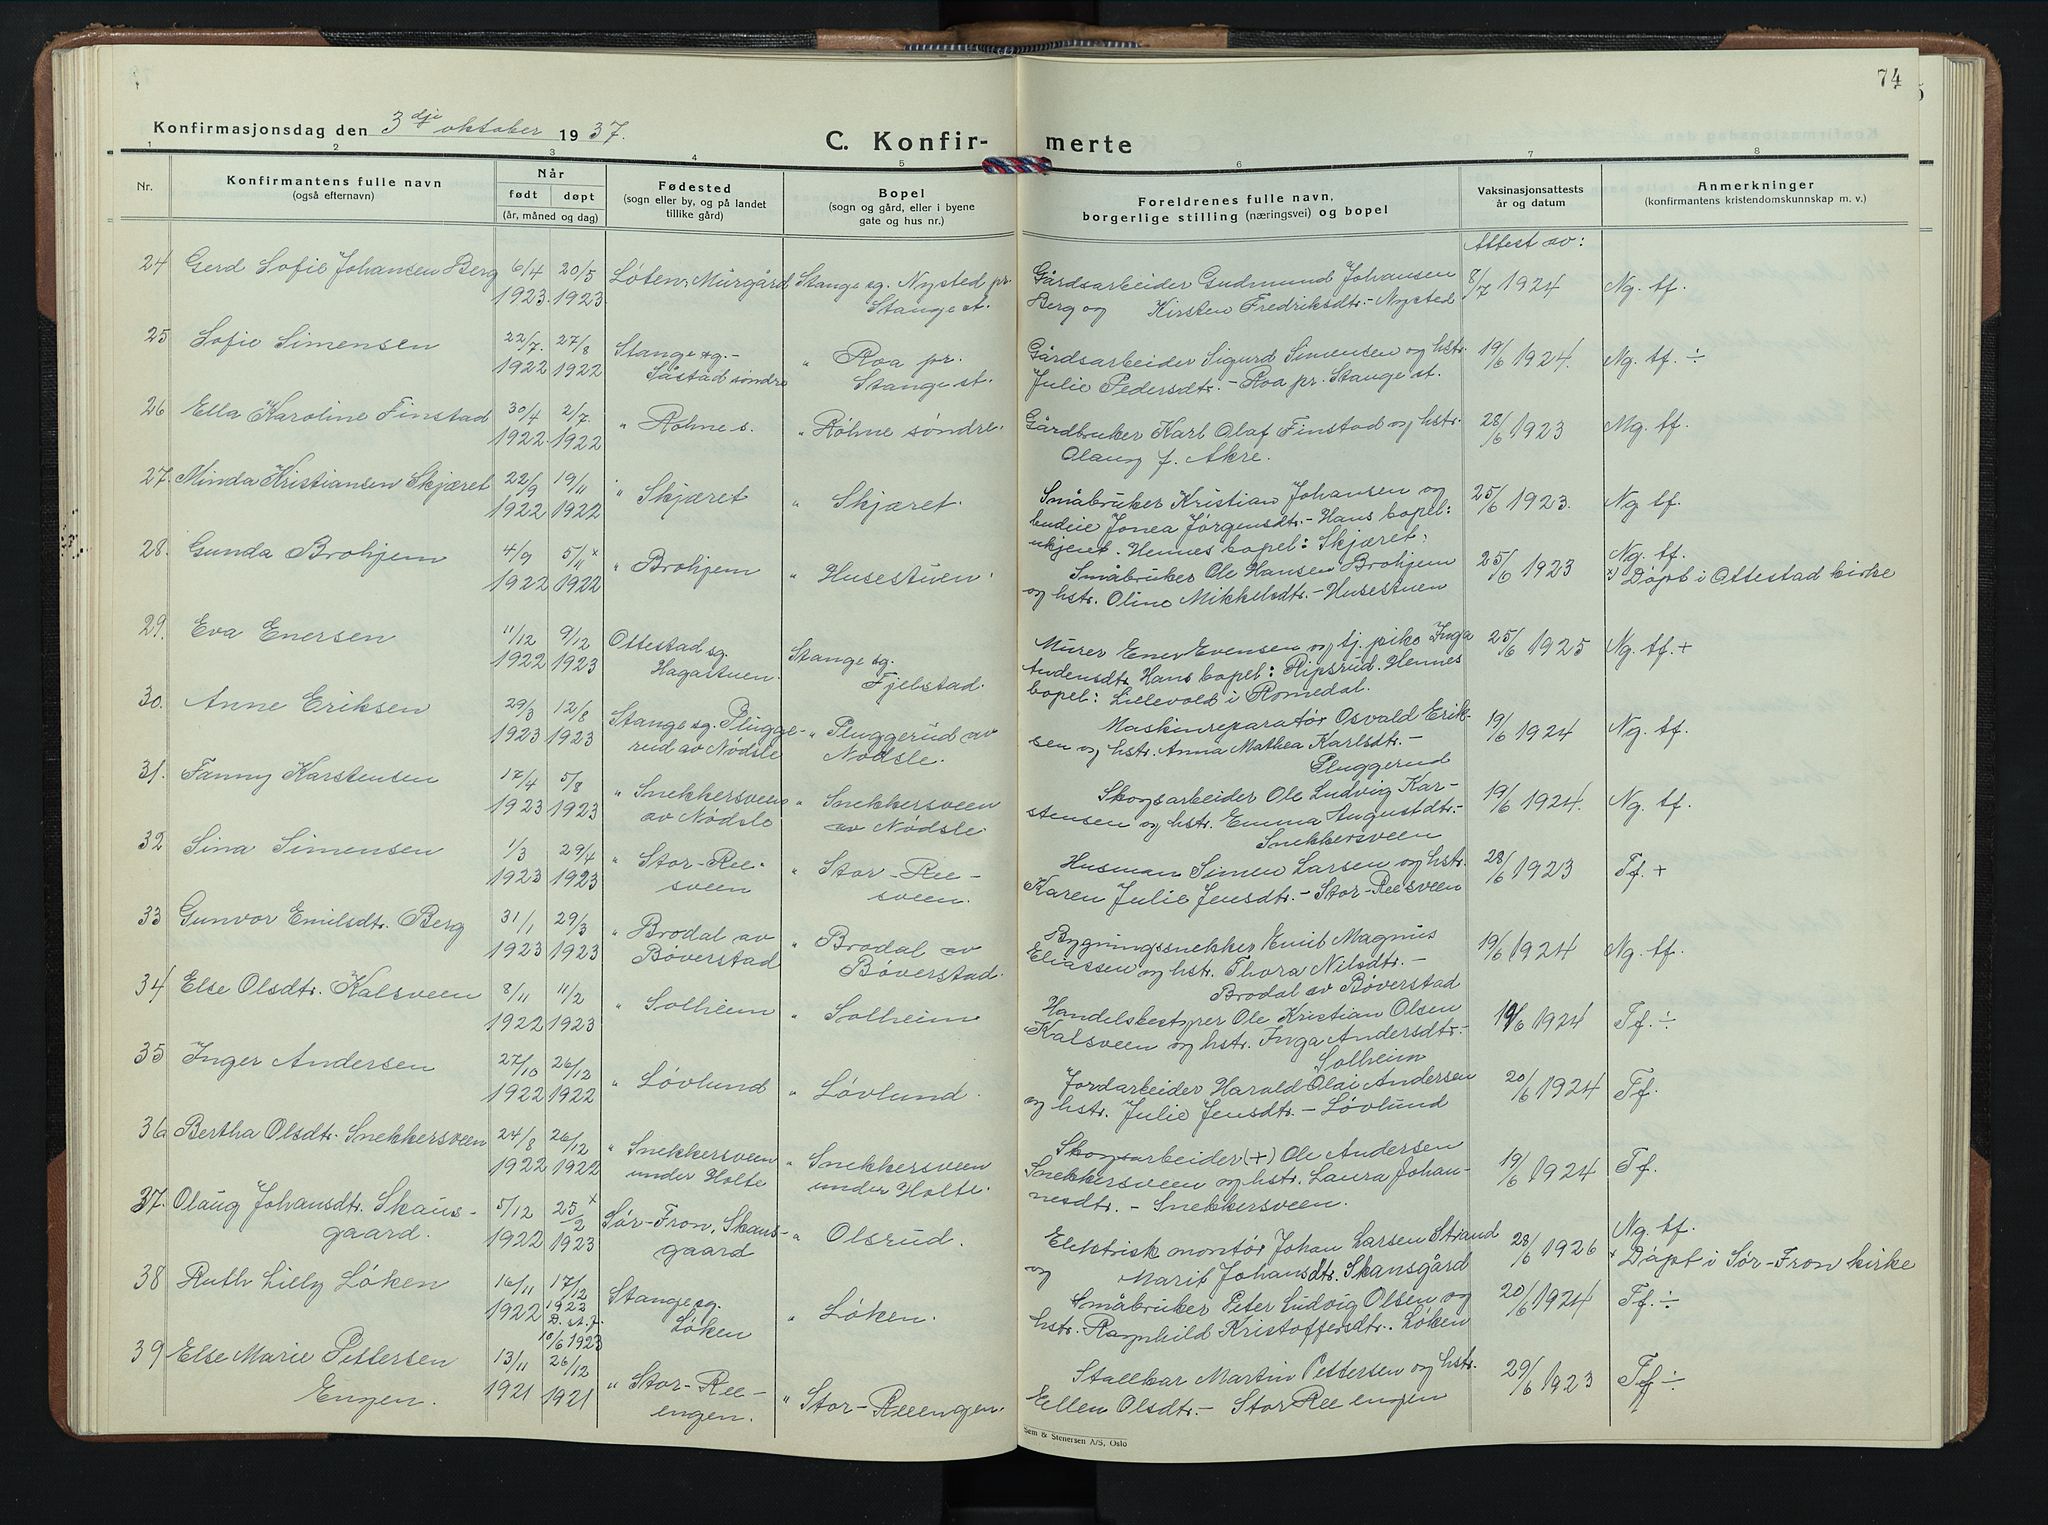 74
Konfirmasjonsdag den 3dje oktober 1937.
C. Konfir-merte
1 2 3 4 5 6 7 8
Nr.
Konfirmantens fulle navn
(også efternavn)
Når
født døpt
(år, måned og dag)
Fødested
(sogn eller by, og på landet
tillike gård)
Bopel
(sogn og gård, eller i byene
gate og hus nr.)
Foreldrenes fulle navn,
borgerlige stilling (næringsvei) og bopel
Vaksinasjonsattests
år og datum
Anmerkninger
(konfirmantens kristendomskunnskap m. v.)
Attest av:
24 Gerd Sofie Johansen Berg 6/4 20/5 Løten, Murgård Stange sg. Nysted pr. Gårdsarbeider Gudmund Johansen 8/7 1924 Ng. tf.
1923 1923 Stange st. Berg og Kirsten Fredriksdtr. - Nysted
25 Sofie Simensen 22/7. 27/8 Stange sg. - " Roa pr. Gårdsarbeider Sigurd Simensen og hstr. 19/6 1924. Ng. tf. ÷
1922 1922 Såstad søndre Stange st. Julie Pedersdtr. - Roa pr. Stange st.
26 Ella Karoline Finstad 30/4 2/7. " Røhne s. " Røhne søndre. Gårdbruker Karl Olaf Finstad og hstr. 28/6 1923 Mg. tf.
1922. 1922 Olaug f. Akre.
27. Minda Kristiansen Skjæret 22/9 19/11 " Skjæret " Skjæret. Småbruker Kristian Johansen og 25/6 1923. Ng tf.
1922 1922 budeie Jonea Jørgensdtr. - Hans bopel:
ukjent. Hennes bopel: Skjæret.
28. Gunda Brohjem 4/9 5/11 x " Brohjem " Husestuen. Småbruker Ole Hansen Brohjem 25/6 1923 Ng. tf.
1922 1922 og hstr. Oline Mikkelsdtr. - Husestuen x) Døpt i Ottestad kirke
29. Eva Enersen 11/12 9/12 Ottestad sg. Stange sg. Murer Ener Evensen og tj. pike Inga 25/6 1925 Ng. tf. +
1922 1923 Hagastuen. Fjelstad. Andersdtr. Hans bopel: Ripsrud. Hennes
bopel: Lillevold i Romedal.
30. Anne Eriksen 29/3 12/8 Stange sg. Plugge- " Pluggerud av Maskinreparatør Osvald Erik- 19/6 1924 Ng. tf.
1923 1923 rud av Nødsle Nødsle. sen og hstr. Anna Mathea Karlsdtr. -
Pluggerud
31. Fanny Karstensen 17/4 5/8 " Snekkersveen " Snekkersveen Skogsarbeider Ole Ludvig Kar- 19/6 1924. Ng. tf.
1923 1923 av Nødsle av Nødsle. stensen og hstr. Emma Augustdtr. -
Snekkersveen
32 Sina Simensen 1/3 29/4 " Stor-Ree- " Stor-Ree- Husman Simen Larsen og hstr. 28/6 1923 Tf. +
1923 1923 sveen sveen. Karen Julie Jensdtr. - Stor-Reesveen
33 Gunvor Emilsdtr. Berg 31/1 29/3 " Brodal av " Brodal av Bygningssnekker Emil Magnus 19/6 1924 Ng. tf.
1923 1923 Bøverstad Bøverstad. Eliassen og hstr. Thora Nilsdtr. -
Brodal av Bøverstad
34 Else Olsdtr. Kalsveen 8/11 11/2 " Solheim " Solheim Handelsbestyrer Ole Kristian Olsen 19/6 1924 Tf. ÷
1922 1923 Kalsveen og hstr. Inga Andersdtr. -
Solheim
35 Inger Andersen 27/10 26/12 " Løvlund " Løvlund. Jordarbeider Harald Olai Andersen 20/6 1924 Tf.
1922 1922 og hstr. Julie Jensdtr. - Løvlund
36 Bertha Olsdtr. Snekkersveen 24/8 26/12 " Snekkersveen " Snekkersveen Skogsarbeider (+) Ole Andersen 19/6 1924 Tf.
1922 1922 under Holte under Holte. Snekkersveen og hstr. Laura Johan-
nesdtr. - Snekkersveen.
37. Olaug Johansdtr. Skans- 5/12 25/2 x Sør-Fron, Skans- " Olsrud. Elektrisk montør Johan Larsen Strand 28/6 1926 Ng. tf.
gaard. 1922 1923 gaard og Marit Johansdtr. Skansgård x Døpt i Sør-Fron kirke
38 Ruth Lilly Løken 16/11 17/12 Stange sg. " Løken. Småbruker Peter Ludvig Olsen og 20/6 1924 Tf. ÷
1922 1922 Løken hstr. Ragnhild Kristoffersdtr. Løken
10/6 1923
39 Else Marie Pettersen 13/11 26/12 " Stor-Ree- " Stor-Reeengen. Stallkar Martin Pettersen og hstr. 29/6 1923 Tf ÷
Engen. 1921 1921 engen. Ellen Olsdtr. - Stor Ree engen
Sem & Stenersen A/S, Oslo